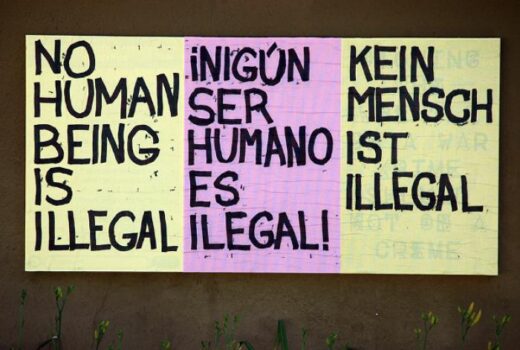 NO
HUMAN
BEING
IS
ILLEGAL
¡NIGÚN
SER
HUMANO
ES
ILEGAL!
KEIN
MENSCH
IST
ILLEGAL
A WAR
CRIME